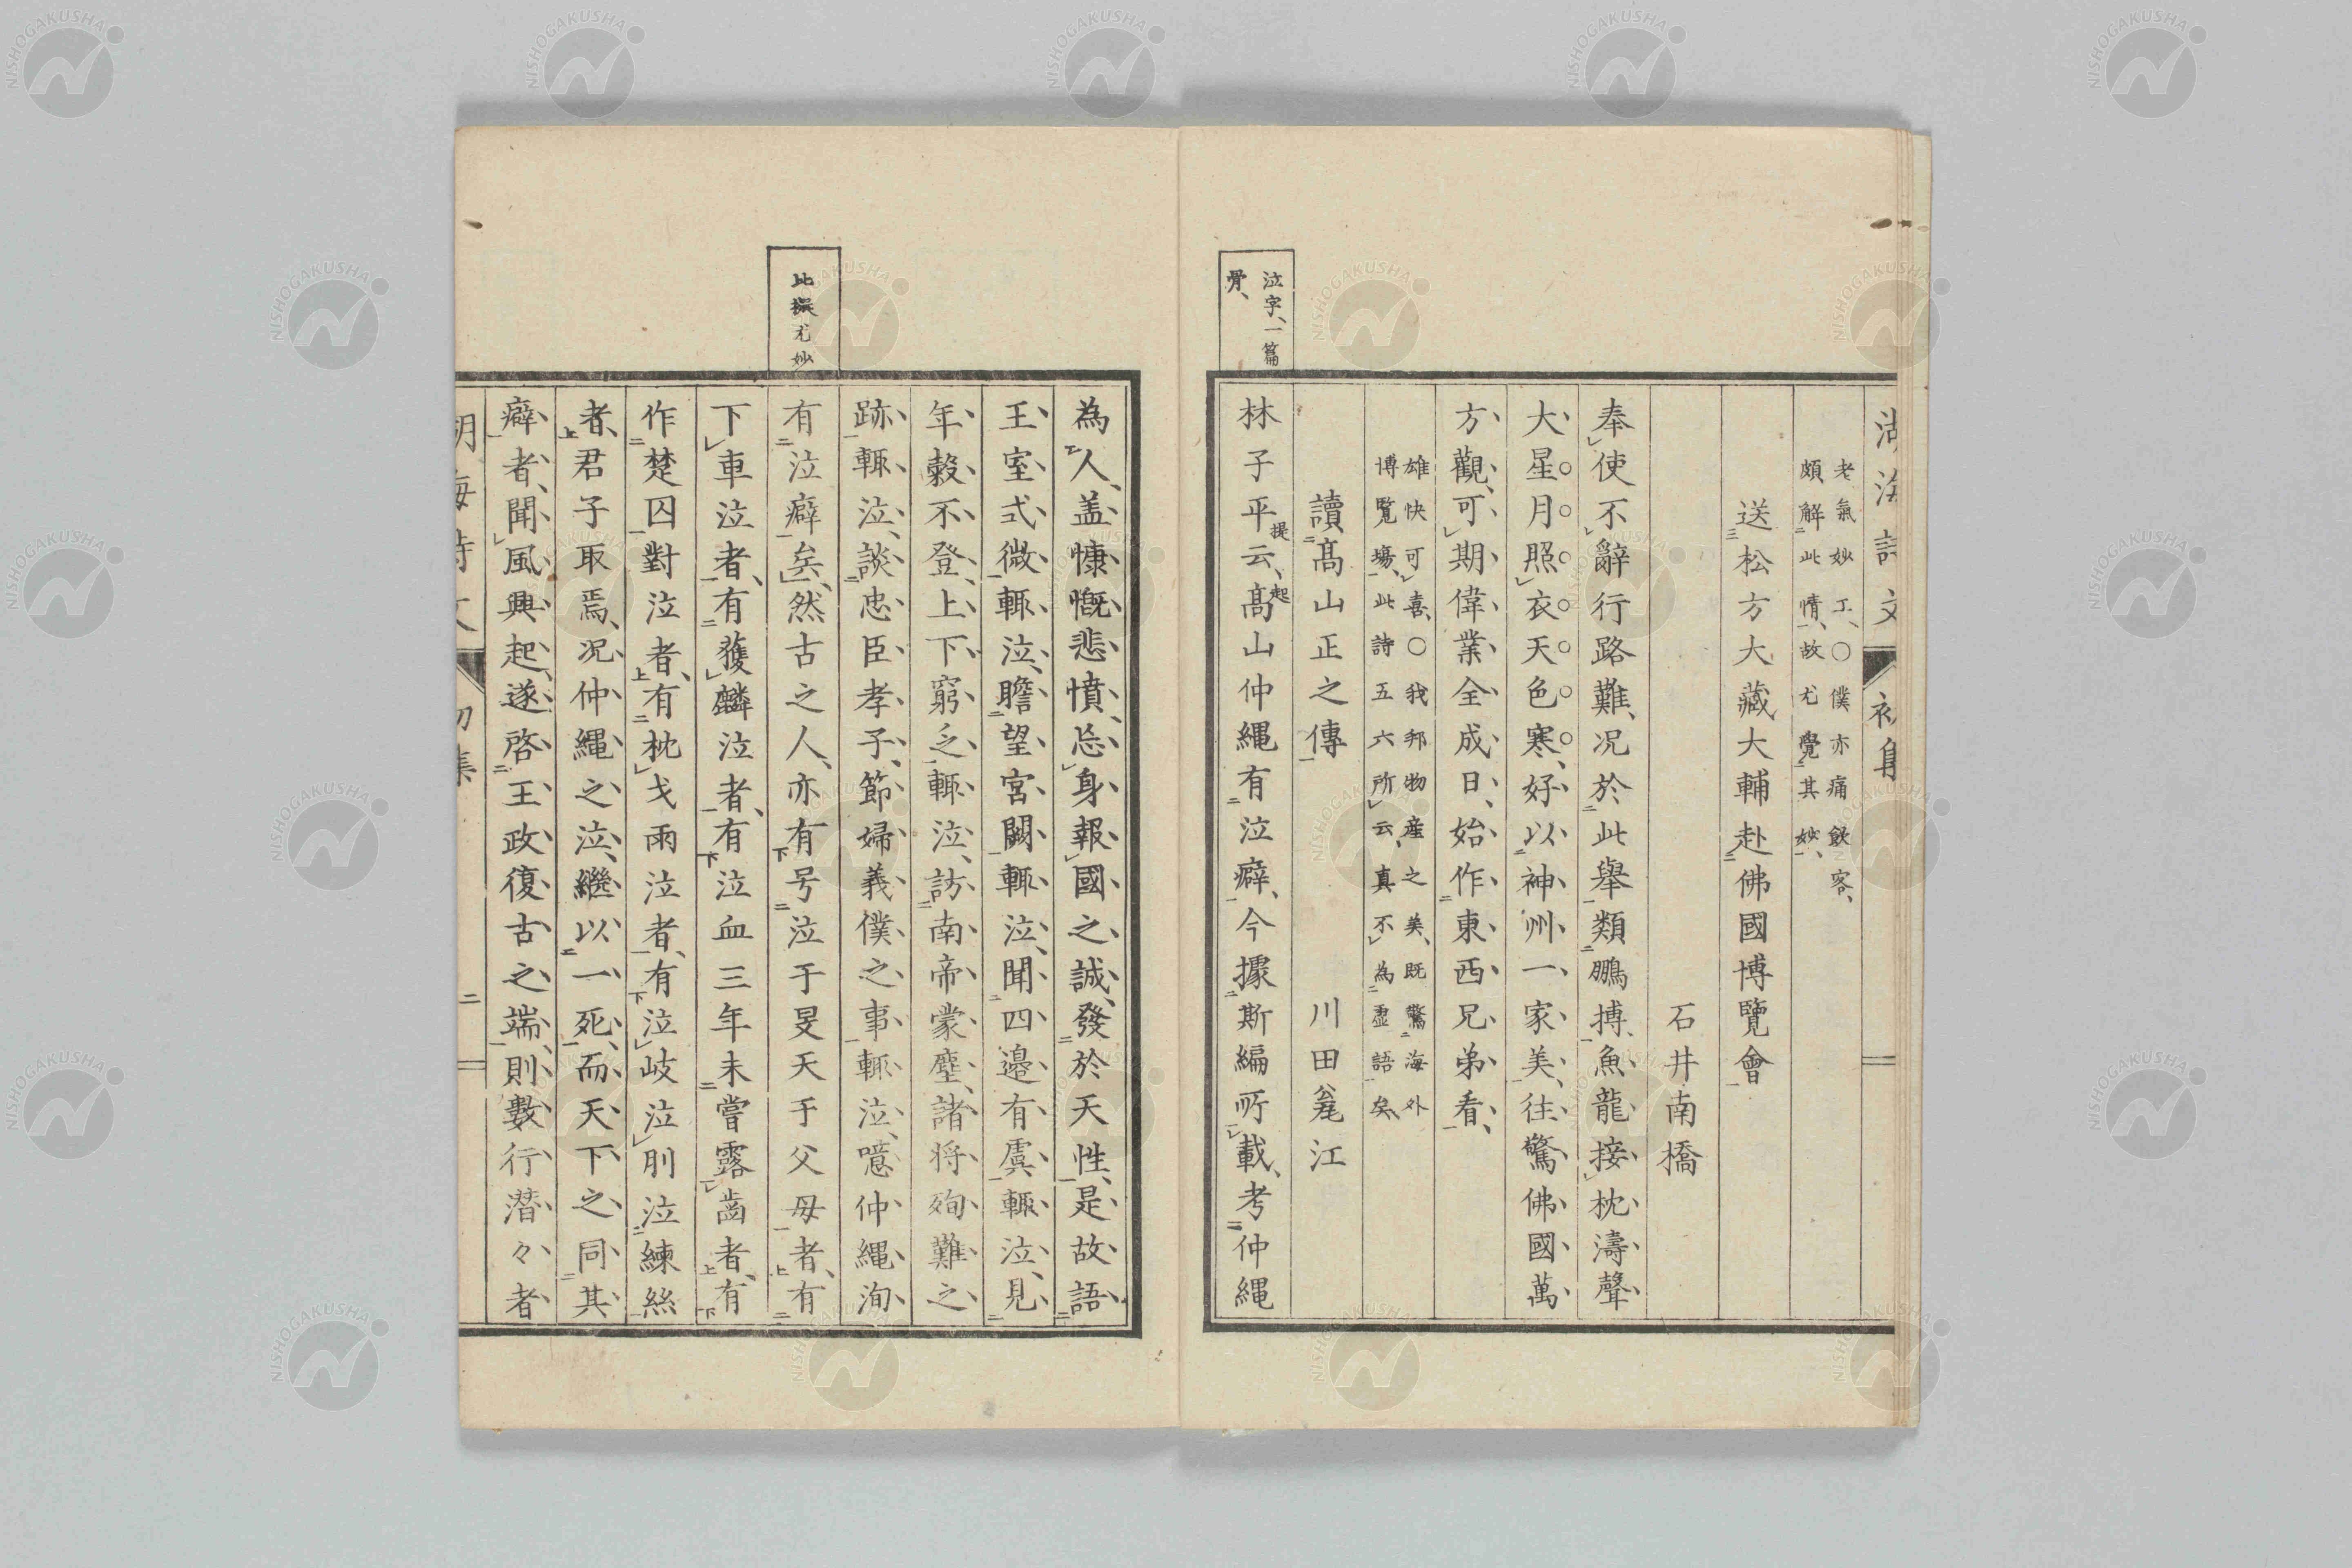 湖海詩文 初集
老氣妙工、○僕亦痛飲客、
頗解此情、故尤覺其妙、
送松方大藏大輔赴佛國博覽會
石井南橋
奉使不辭行路難、况於此舉類鵬搏、魚龍接枕濤聲
大星月照衣天色寒、好以神州一家美、往驚佛國萬
方觀、可期偉業全成日、始作東西兄弟看、
雄快可喜、○我邦物産之美、既驚海外
博覽塲、此詩五六所云、真不為虚語矣、
讀髙山正之傳
川田甕江
泣字、一篇
骨、
林子平云、髙山仲縄有泣癖、今據斯編所載、考仲縄
提起
為人、盖慷慨悲憤、忘身報國之誠、發於天性、是故語
王室式微輒泣、瞻望宮闕輒泣、聞四邊有虞輒泣、見
年穀不登、上下窮乏輒泣、訪南帝蒙塵、諸将殉難之
跡輒泣、談忠臣孝子、節婦義僕之事輒泣、噫仲縄洵
比擬尤妙
有泣癖矣、然古之人、亦有号泣于旻天于父母者、有
下車泣者、有獲麟泣者、有泣血三年未嘗露齒者、有
作楚囚對泣者、有枕戈雨泣者、有泣岐泣刖泣練絲
者、君子取焉、况仲縄之泣、繼以一死、而天下之同其
癖者、聞風興起、遂啓王政復古之端、則數行潜々者
湖海詩文 初集 二
NISHOGAKUSHA